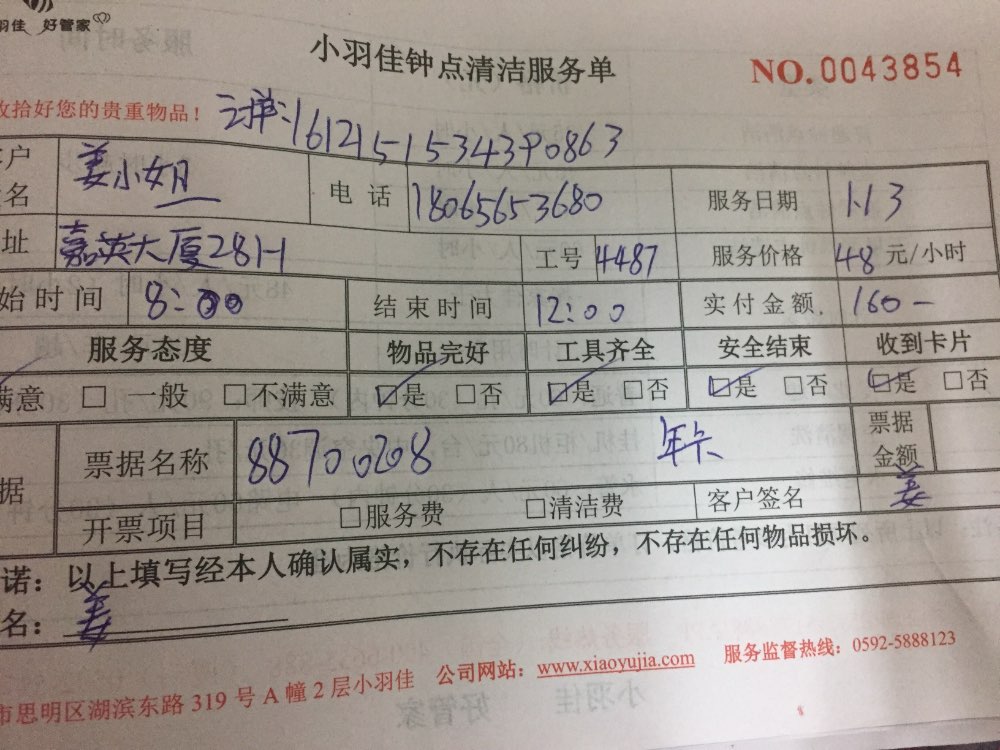 羽佳 好管家
小羽佳钟点清洁服务单
NO.0043854
收拾好您的贵重物品！
161215153439 0863
客户
姓名 姜小姐 电话 18065653680 服务日期 1.13
址 嘉英大厦281-1 工号 4487 服务价格 48元/小时
始时间 8:00 结束时间 12:00 实付金额 160-
服务态度 物品完好 工具齐全 安全结束 收到卡片
满意 □ 一般 □不满意 ☑是 □否 ☑是 □否 ☑是 □否 ☑是 □否
据 票据名称 88700208 年卡 票据金额
开票项目 □服务费 □清洁费 客户签名 姜
诺：以上填写经本人确认属实，不存在任何纠纷，不存在任何物品损坏。
名：姜
市思明区湖滨东路 319 号 A 幢 2 层小羽佳 公司网站：www.xiaoyujia.com 服务监督热线：0592-5888123